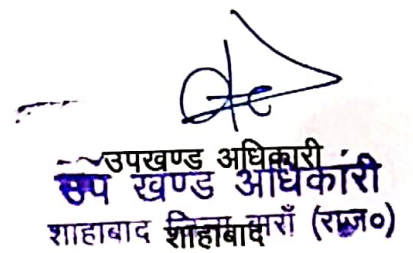 उपखण्ड अधिकारी
उप खण्ड अधिकारी
शाहाबाद जिला बाराँ (राज०)
शाहाबाद